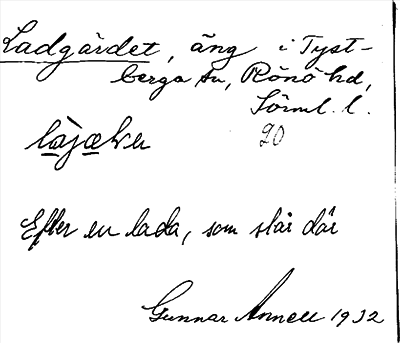 Ladgärdet, äng i Tyst-
berga sn, Rönö hd,
Sörml. l.
20
Efter en lada, som står där
Gunnar Annell 1932